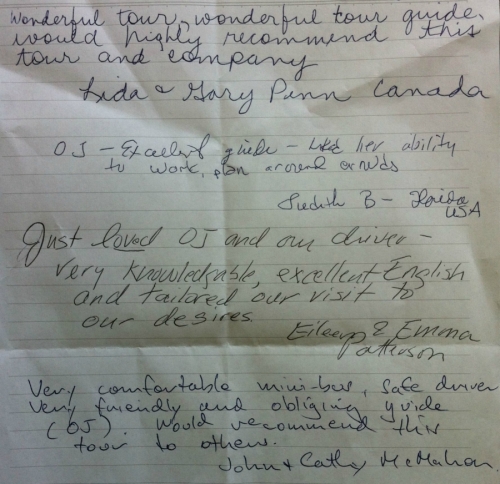 Wonderful tour, wonderful tour guide.
would highly recommend this
tour and company
Lida & Gary Penn Canada
OJ – Excellent guide – Liked her ability
to work, plan around crowds
Judith B – Florida
USA
Just loved OJ and our driver –
very knowledgable, excellent English
and tailored our visit to
our desires.
Eileen & Emma
Patterson
Very comfortable mini-bus, safe driver
very friendly and obliging guide
(OJ). Would recommend this
tour to others.
John & Cathy McMahon.